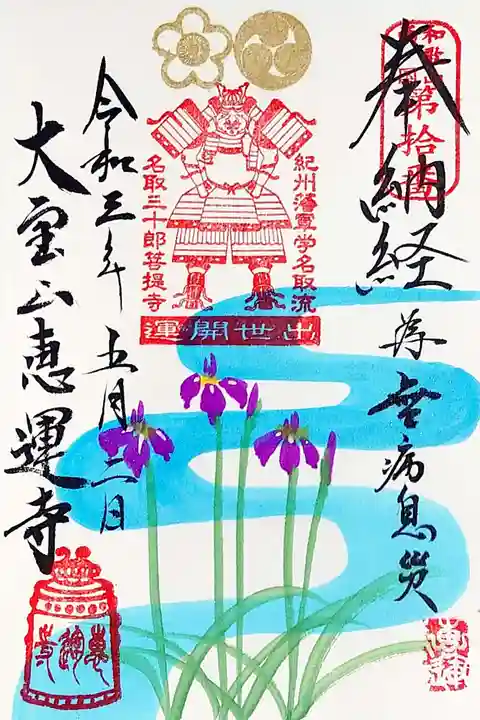 奉納経
為無病息災
第拾番
紀州藩軍学名取流
名取三十郎菩提寺
出世開運
令和三年五月二日
大宝山恵運寺
恵運寺